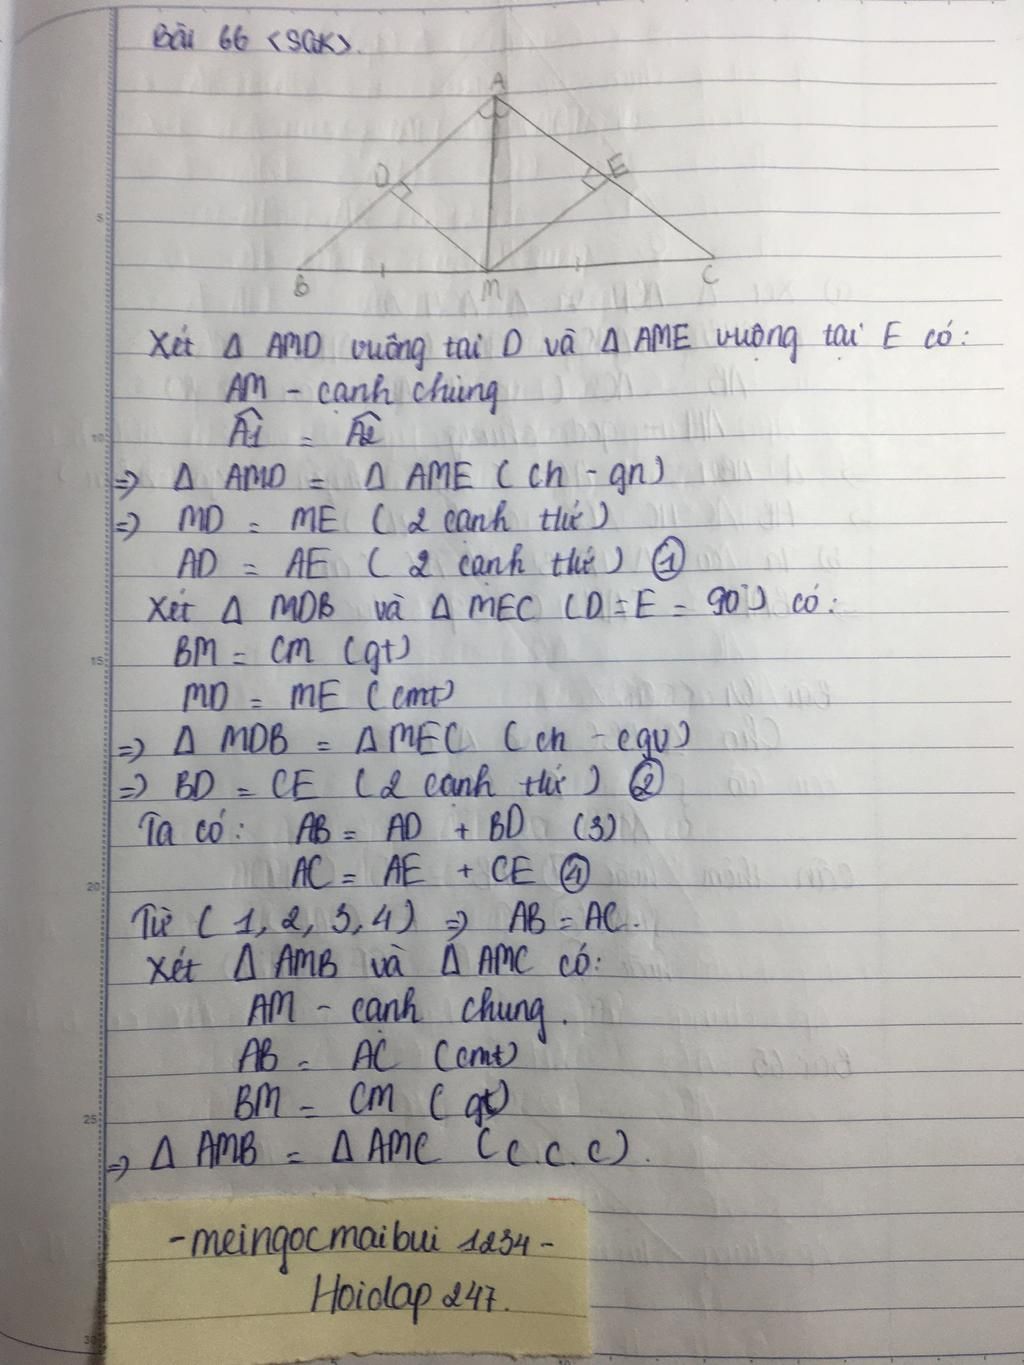 Bài 66 <SGK>.
A
D
E
B
M
C
Xét Δ AMD vuông tại D và Δ AME vuông tại E có:
AM - cạnh chung
Â1 = Â2
=> Δ AMD = Δ AME (ch - gn)
=> MD = ME (2 cạnh tứ)
AD = AE (2 cạnh tứ) ①
Xét Δ MDB và Δ MEC (D = E = 90°) có:
BM = CM (gt)
MD = ME (cmt)
=> Δ MDB = Δ MEC (ch - cgv)
=> BD = CE (2 cạnh tứ) ②
Ta có: AB = AD + BD (3)
AC = AE + CE ④
Từ (1, 2, 3, 4) => AB = AC.
Xét Δ AMB và Δ AMC có:
AM - cạnh chung.
AB = AC (cmt)
BM = CM (gt)
=> Δ AMB = Δ AMC (c.c.c).
-meingocmaibui 1234-
Hoidap 247.